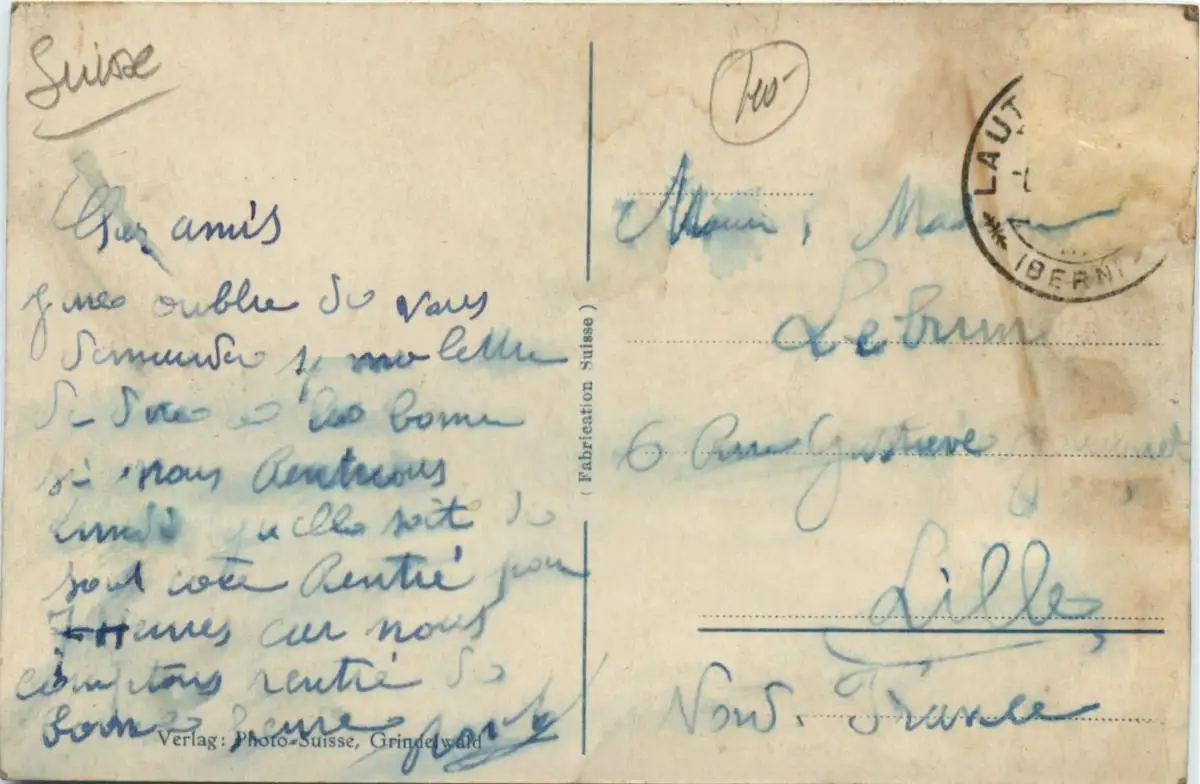 Suisse
Cher amis
oublie de vous
demander si ma lettre
bonne
si nous Rentrions
lundi quelle soit de
sont coté Rentré pour
7 heures car nous
comptons rentré de
bonne heure
Verlag: Photo-Suisse, Grindelwald
( Fabrication Suisse )
LAUT
(BERN
Lebrun
6 Rue Gustave
Lille
Nord. France